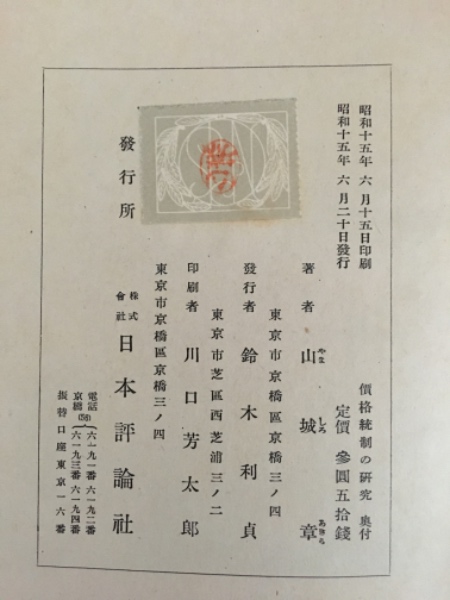 價格統制の研究 奥付
定價 參圓五拾錢
昭和十五年 六月十五日印刷
昭和十五年 六月二十日發行
著者 山城章
やま しろ あきら
東京市京橋區京橋三ノ四
發行者 鈴木利貞
東京市芝區西芝浦三ノ二
印刷者 川口芳太郎
東京市京橋區京橋三ノ四
發行所 株式會社 日本評論社
電話京橋(56) 六一九一番 六一九二番
六一九三番 六一九四番
振替口座東京一六番